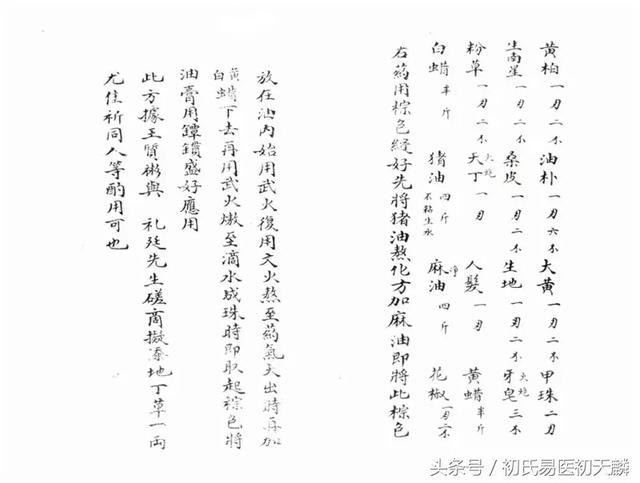 黄柏 一刃二不 油朴 一刃六不 大黄 一刃二不 甲珠 二刃
生南星 一刃二不 桑皮 一刃二不 生地 一刃二不 牙皂 火炮 三不
粉草 一刃二不 天丁 火炮 一刃 人髮 一刃 黄蜡 半斤
白蜡 半斤 猪油 四斤 不粘生水 净 麻油 四斤 花椒 一刃二不
右葯用棕色縫好先將猪油熬化方加麻油即將此棕色
放在油内始用武火復用文火熬至葯氣大出時再加
黄蜡白蜡下去再用武火燉至滴水成珠時即取起棕色將
油膏用罈鑵盛好應用
此方據王質彬與 礼廷先生磋商擬添地丁草一両
尤佳祈同人等酌用可也
头条号 / 初氏易医初天麟